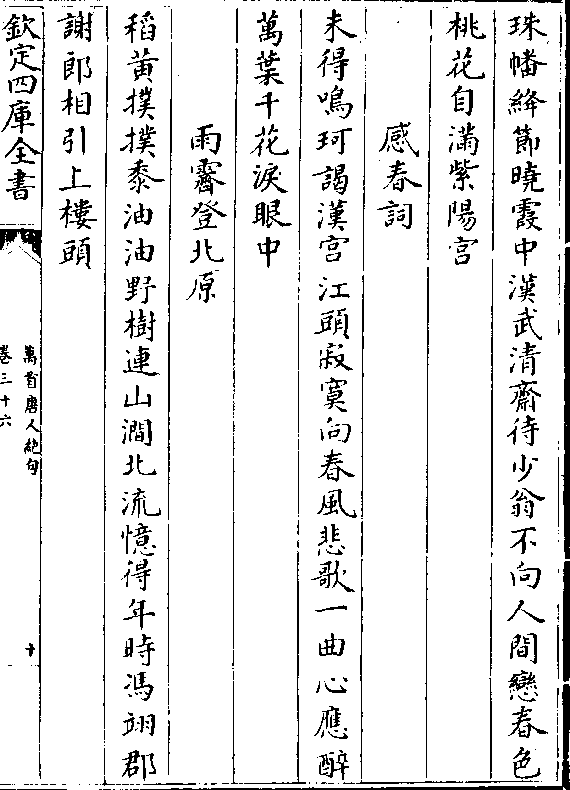 珠幡絳節曉霞中漢武清齋待少翁不向人間戀春色
桃花自滿紫陽宫
感春詞
未得鳴珂謁漢宫江頭寂寞向春風悲歌一曲心應醉
萬葉千花淚眼中
雨霽登北原
稻黄撲撲黍油油野樹連山澗北流憶得年時馮翊郡
謝郎相引上樓頭
欽定四庫全書
萬首唐人絶句
卷三十六
十